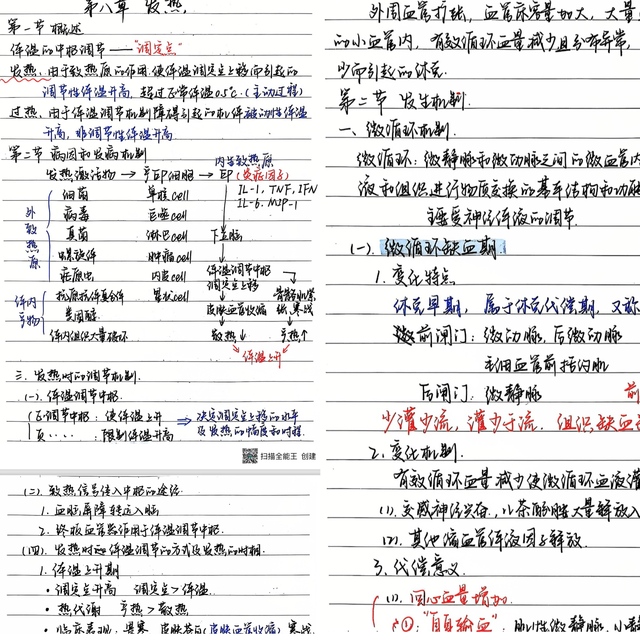 第八章 发热
第一节 概述
体温的中枢调节——"调定点"
发热:由于致热原的作用,使体温调定点上移而引起的
调节性体温升高,超过正常体温0.5℃.(主动过程)
过热:由于体温调节机制障碍引起的机体被动性体温
升高,非调节性体温升高
第二节 病因和发病机制
内生致热原
发热激活物 → 产EP细胞 → EP (炎症因子)
细菌 单核cell IL-1, TNF, IFN
病毒 巨噬cell IL-6, MIP-1
外致热原
真菌 淋巴cell 下丘脑
螺旋体 肿瘤cell
疟原虫 内皮cell 体温调节中枢
调定点上移
体内产物
抗原抗体复合体 星状cell 骨骼肌紧张、寒战
类固醇 皮肤血管收缩
体内组织大量破坏 散热↓ 产热↑
体温上升
三、发热时的调节机制
(一)、体温调节中枢
正调节中枢:使体温上升 ⇒ 决定调定点上移的水平
负‥‥:限制体温升高 及发热的幅度和时程
扫描全能王 创建
(二)致热信号传入中枢的途径
1. 血脑屏障转运入脑
2. 终板血管器作用于体温调节中枢
(四)、发热时体温调节的方式及发热的时相
1. 体温上升期
·调定点升高 调定点>体温
·热代谢 产热>散热
·临床表现:畏寒 皮肤苍白(皮肤血管收缩) 寒战
外周血管扩张,血管床容量加大,大量
的小血管内,有效循环血量减少且分布异常,
少而引起的休克
第二节 发生机制
一、微循环机制
微循环:微静脉和微动脉之间的微血管内
液和组织进行物质交换的基本结构和功能
主要受神经体液的调节
(一). 微循环缺血期
1. 变化特点
休克早期,属于休克代偿期,又称
前闸门:微动脉,后微动脉
毛细血管前括约肌
后闸门:微静脉 前
少灌少流,灌少于流,组织缺血
2. 变化机制
有效循环血量减少使微循环血液灌
(1). 交感神经兴奋,儿茶酚胺大量释放入
(2). 其他缩血管体液因子释放
3. 代偿意义
(1). 回心血量增加
①:"自身输血":肌性微静脉,小静